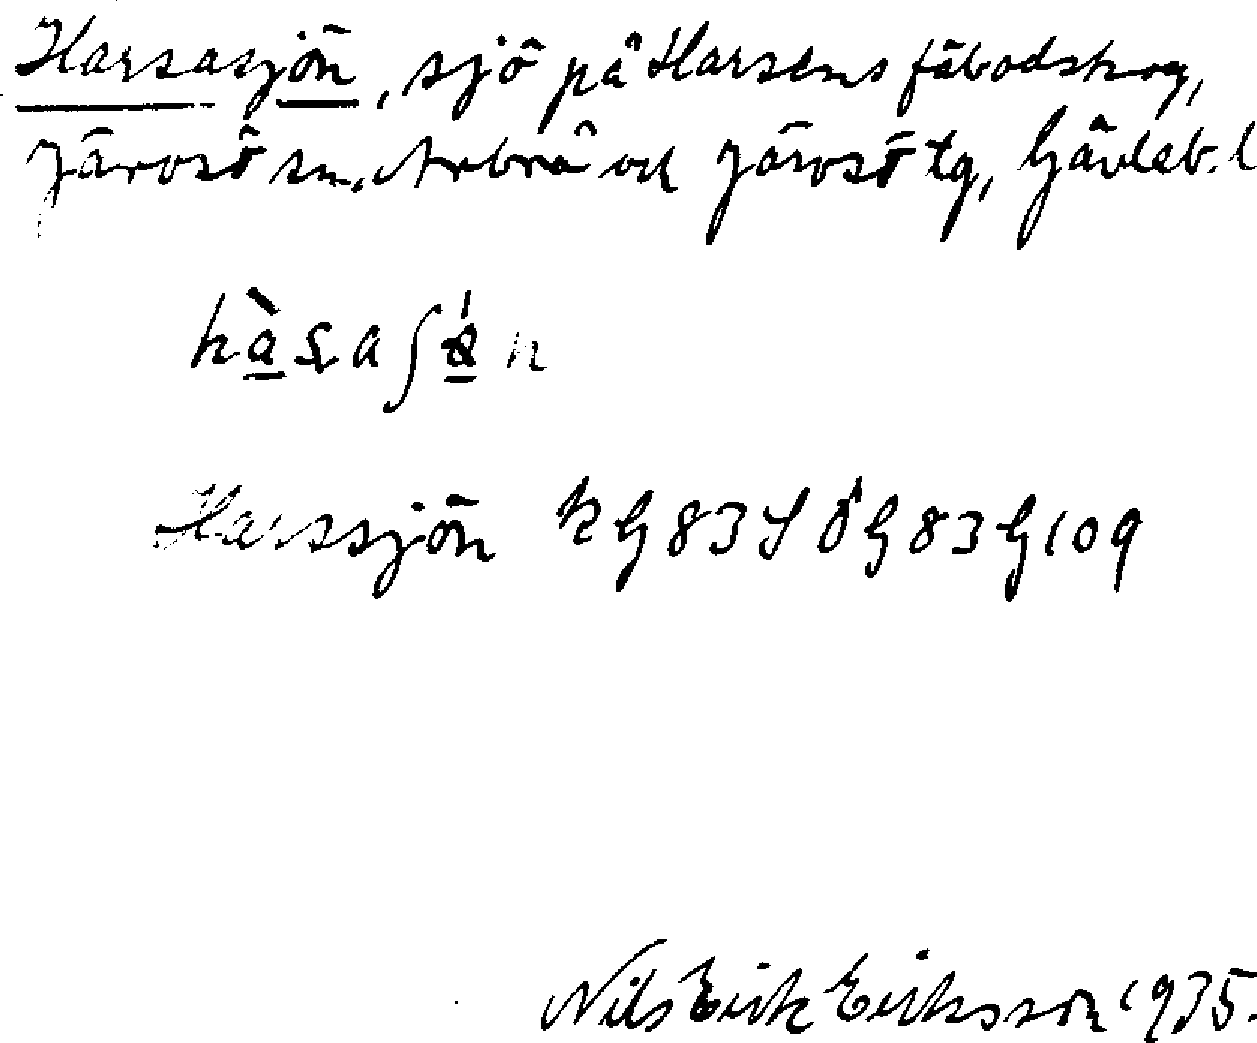 Harsasjön, sjö på Harsens fäbodskog,
Järvsö sn, Arbrå och Järvsö tg, Gävleb. l
hàsaʃǿn
Harssjön kG83 SöG83G109
Nils Erik Eriksson 1935.